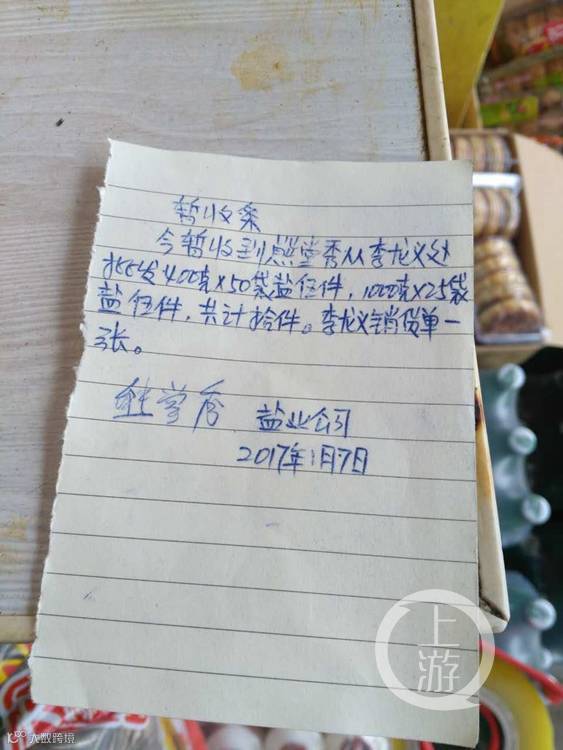 暂收条
今暂收到熊学秀从李龙义处
批发400克×50袋盐伍件，1000克×25袋
盐伍件，共计拾件。李龙义销货单一
张。
熊学秀 盐业公司
2017年1月7日
上游
大数跨境